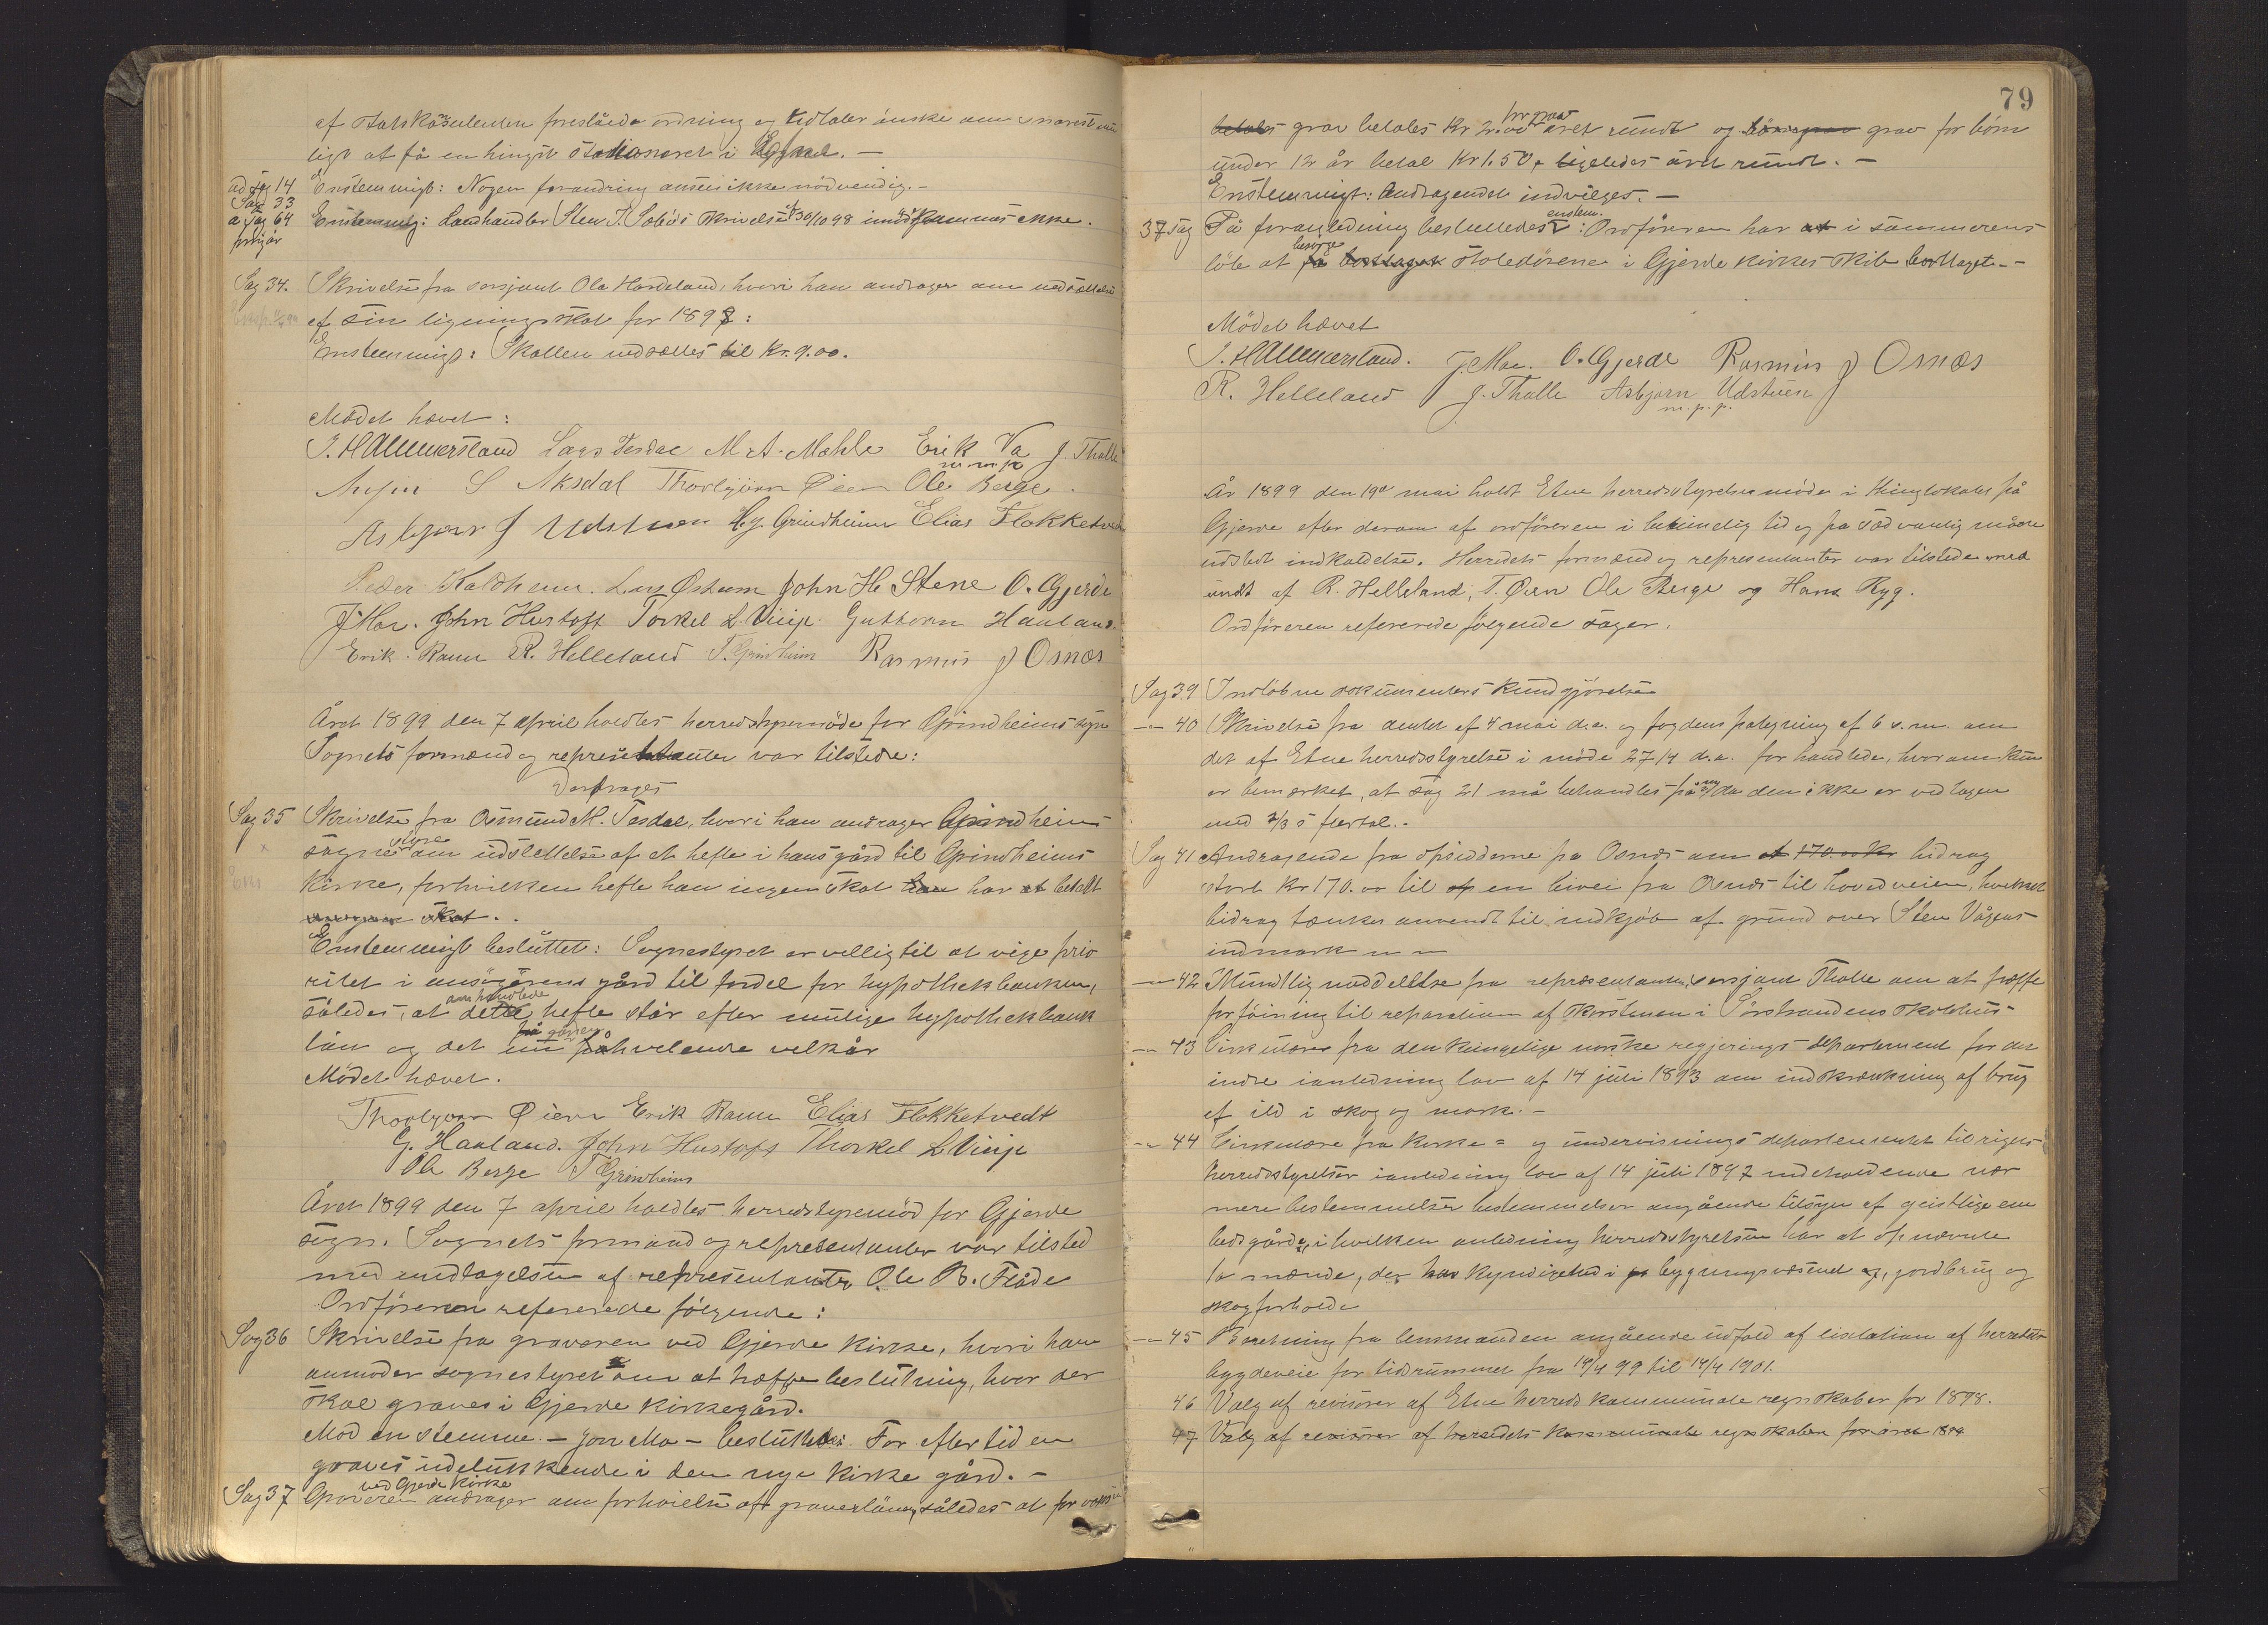 af statskonsulenten foreslåede ordning og udtaler ønske om snarest mu
ligt at få en hingst stationeret i Sognet. —
ad sag 14 Enstemmigt: Nogen forandring ansees ikke nødvendig. —
Sag 33
a sag 64 Enstemmig: Landhandler Sten T. Sæbøs skrivelse af 30/10 98 imødekommes ikke.
forrigår
Sag 34. Skrivelse fra sersjant Ola Hardeland, hvori han andrager om nedsættelse
af sin ligningsskat for 1898:
Enstemmigt: Skatten nedsættes til Kr. 9.00.
Mødet hævet:
I. Hammersland Lars Tesdal M. A. Mæhle Erik Va J. Thalle
m m p
S Aksdal Thorbjørn Øien Ole Berge.
Asbjørn J Udstuen Hg. Grindheim Elias Flokketvedt
Peder Kaldheim. Lars Østrem John H. Stene O. Gjerde
J Moe. John Hustoft Torkel L. Vinje. Guttorm Haaland.
Erik Ramn R. Helleland T. Grindheim Rasmus J Osnæs
Året 1899 den 7 april holdtes herredstyremøde for Grindheims sogn
Sognets formænd og representanter var tilstede:
Derfrages
Sag 35 Skrivelse fra Osmund M. Tesdal, hvori han andrager Grindheims
sognestyre om udslettelse af et hefte i hans gård til Grindheims
Kirke, forhvilken hefte han ingen skat har betalt
skat.
Enstemmigt besluttet: Sognestyret er villig til at vige prio
ritet i ansøgerens gård til fordel for hypothekbanken,
således, at omhandlede hefte står efter mulige hypothekbank
lån og det nu på gården påhvilende vilkår
Mødet hævet.
Thorbjørn Øien Erik Ramn Elias Flokketvedt
G. Haaland. John Hustoft Thorkel L Vinje
Ole Berge T Grindheim
Året 1899 den 7 april holdtes herredstyremød for Gjerde
sogn. Sognets formænd og representanter var tilsted
med undtagelse af representanter Ole B. Fløde
Ordføreren refererede følgende:
Sag 36 Skrivelse fra graveren ved Gjerde Kirke, hvori han
anmoder sognestyret om at træffe beslutning, hvor der
skal graves i Gjerde Kirkegård.
Mod en stemme — Jon Mo — besluttedes: For eftertiden
graves udelukkende i den nye Kirke gård. —
ved Gjerde Kirke
Sag 37 Graveren andrager om forhøielse af graverlønnen, således at for voksne
79
betales grav betales Kr 2.00 pr grav året rundt og grav for børn
under 12 år betal Kr 1.50, ligeledes året rundt. —
Enstemmigt: Andragendet indvilges. —
37 Sag På foranledning besluttedes enstem.: Ordføreren har at i sommerens
løb at besørge stoledørene i Gjerde Kirkes skib borttaget. —
Mødet hævet
I. Hammersland. J. Moe. O. Gjerde Rasmus J Osnæs
R. Helleland J. Thalle Asbjørn Udstuen
m. p. p.
År 1899 den 19de mai holdt Etne herredsstyrelse møde i Thinglokalet på
Gjerde efter derom af ordføreren i betimelig tid og på sædvanlig måde
udstedt indkaldelse. Herredets formænd og representanter var tilstede med
undt af R. Helleland, T. Øien Ole Berge og Hans Ryg.
Ordføreren refererede følgende sager.
Sag 39 Indløbne dokumenters Kundgjørelse
—"— 40 Skrivelse fra amtet af 4 mai d.a. og fogdens påtegning af 6 s.m. om
det af Etne herredsstyrelse i møde 27/4 d.a. forhandlede, hvorom kun
er bemærket, at sag 21 må behandles på ny da den ikke er vedtagen
med 2/3 s flertal. —
Sag 41 Andragende fra opsidderne på Osnæs om at 170.00 Kr bidrag
stort Kr 170.00 til en bivei fra Osnæs til hovedveien, hvilket
bidrag tænkes anvendt til indkjøb af grund over Sten Vågens
indmark
—"— 42 Mundtlig meddelelse fra representanten, sersjant Thalle om at træffe
forføining til reparation af skorstenen i Sørstrandens skolehus —
—"— 43 Cirkulære fra den kongelige norske regjerings departement for det
indre i anledning lov af 14 juli 1893 om indskrænkning af brug
af ild i skog og mark. —
—"— 44 Cirkulære fra Kirke- og undervisningsdepartementet til rigets
herredsstyrelser i anledning lov af 14 juli 1897 indeholdende nær
mere bestemmelser bestemmelser angående tilsyn af geistlige em
bedsgårde, i hvilken anledning herredsstyrelsen har at opnævne
to mænde, der har kyndighed i bygningsvæsenet, jordbrug og
skogforholde
—"— 45 Beretning fra lensmanden angående udfald af lisitation af herredets
bygdeveie for tidsrummet fra 14/4 99 til 14/4 1901.
46 Valg af revisorer af Etne herreds kommunale regnskaber for 1898.
47 Valg af revisorer af herredets kommunale regnskaber for året 1899